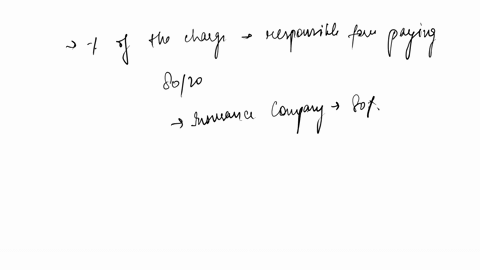 → % of the charge → responsible for paying
80/20
→ Insurance Company → 80%.